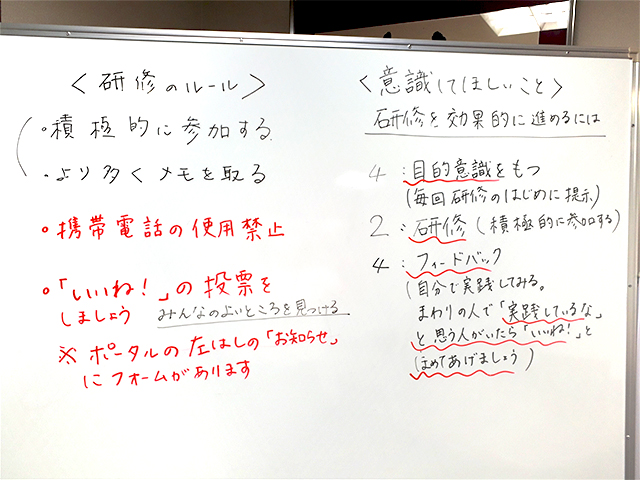 〈研修のルール〉
・積極的に参加する
・より多くメモを取る
・携帯電話の使用禁止
・「いいね!」の投票を
しましょう みんなのよいところを見つける
※ポータルの左はしの「お知らせ」
にフォームがあります
〈意識してほしいこと〉
研修を効果的に進めるには
4:目的意識をもつ
(毎回研修のはじめに提示)
2:研修(積極的に参加する)
4:フィードバック
(自分で実践してみる。
まわりの人で「実践しているな」
と思う人がいたら「いいね!」と
ほめてあげましょう)